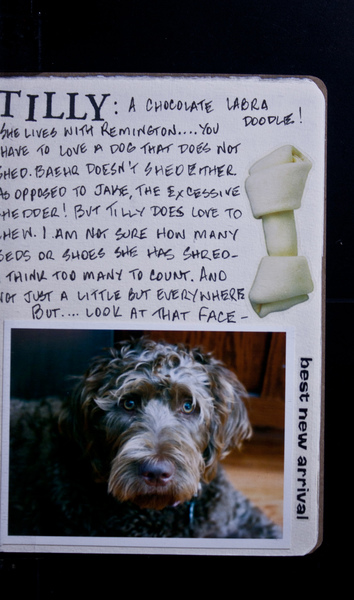 TILLY: A CHOCOLATE LABRA
DOODLE!
SHE LIVES WITH REMINGTON....YOU
HAVE TO LOVE A DOG THAT DOES NOT
SHED. BAEHR DOESN'T SHED EITHER.
AS OPPOSED TO JAKE, THE EXCESSIVE
HEDDER! BUT TILLY DOES LOVE TO
HEW. I AM NOT SURE HOW MANY
BEDS OR SHOES SHE HAS SHRED-
THINK TOO MANY TO COUNT. AND
NOT JUST A LITTLE BUT EVERYWHERE
BUT.... LOOK AT THAT FACE-
best new arrival